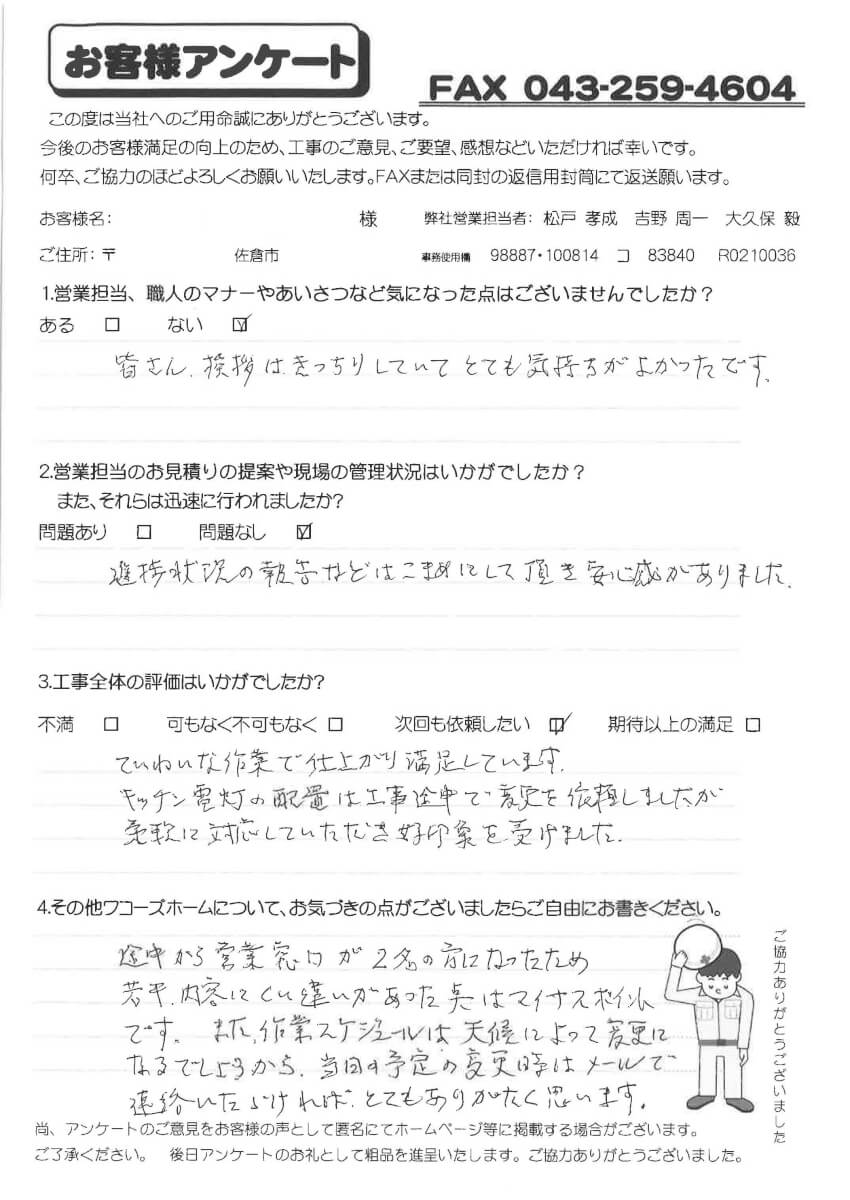 お客様アンケート
FAX 043-259-4604
この度は当社へのご用命誠にありがとうございます。
今後のお客様満足の向上のため、工事のご意見、ご要望、感想などいただければ幸いです。
何卒、ご協力のほどよろしくお願いいたします。FAXまたは同封の返信用封筒にて返送願います。
お客様名: 様 弊社営業担当者: 松戸 孝成 吉野 周一 大久保 毅
ご住所: 〒 佐倉市 事務使用欄 98887・100814 コ 83840 R0210036
1.営業担当、職人のマナーやあいさつなど気になった点はございませんでしたか?
ある □ ない ☑
皆さん、挨拶はきっちりしていてとても気持ちがよかったです。
2.営業担当のお見積りの提案や現場の管理状況はいかがでしたか?
また、それらは迅速に行われましたか?
問題あり □ 問題なし ☑
進捗状況の報告などはこまめにして頂き安心感がありました。
3.工事全体の評価はいかがでしたか?
不満 □ 可もなく不可もなく □ 次回も依頼したい ☑ 期待以上の満足 □
ていねいな作業で仕上がり満足しています。
キッチン電灯の配置は工事途中で変更を依頼しましたが
柔軟に対応していただき好印象を受けました。
4.その他ワコーズホームについて、お気づきの点がございましたらご自由にお書きください。
途中から営業窓口が2名の方になったため
若干、内容にくい違いがあった点はマイナスポイント
です。また、作業スケジュールは天候によって変更に
なるでしょうから、当日の予定の変更時はメールで
連絡いただければ、とてもありがたく思います。
ご協力ありがとうございました
尚、アンケートのご意見をお客様の声として匿名にてホームページ等に掲載する場合がございます。
ご了承ください。 後日アンケートのお礼として粗品を進呈いたします。ご協力ありがとうございました。